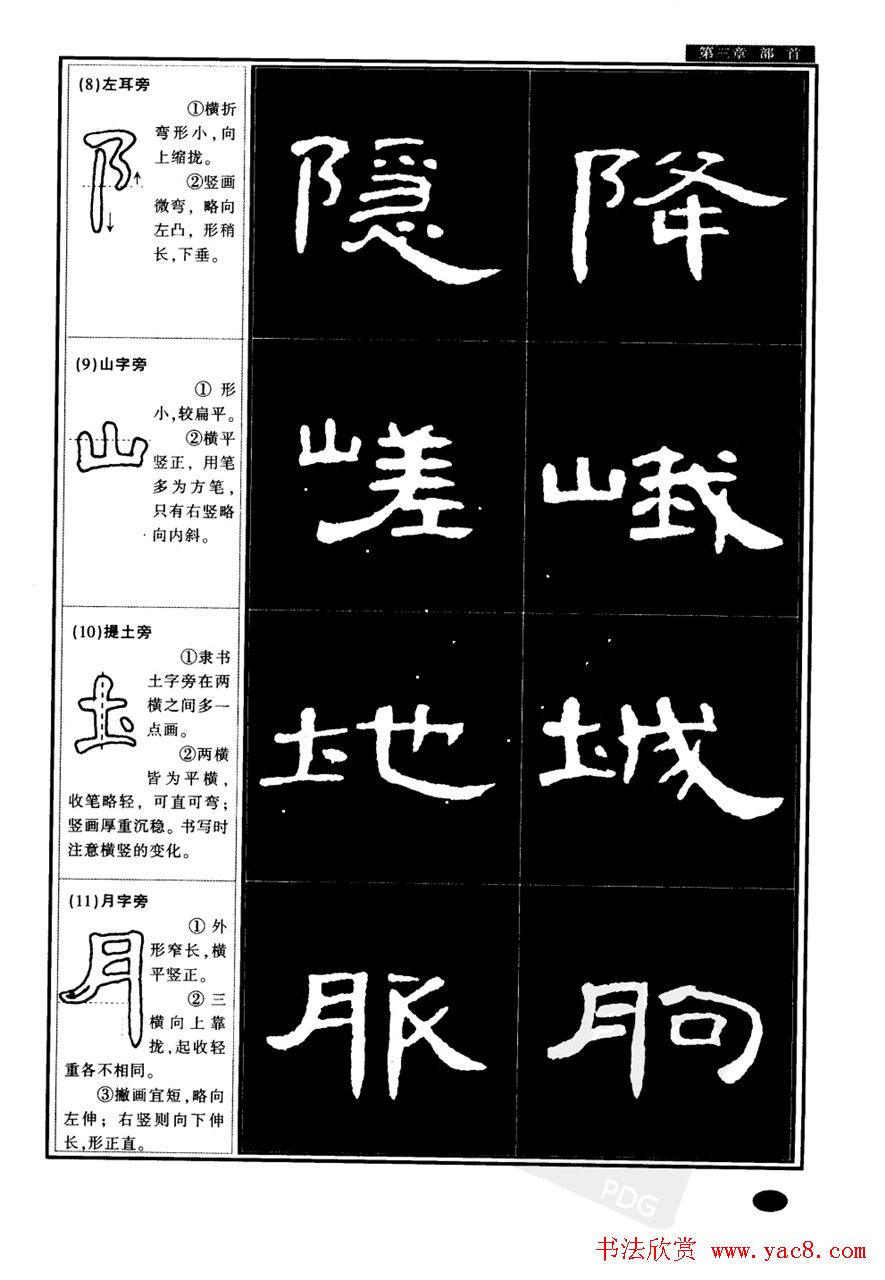 第三章 部 首
(8)左耳旁
①横折
弯形小,向
上缩拢。
②竖画
微弯, 略向
左凸, 形稍
长,下垂。
隐 降
(9)山字旁
① 形
小,较扁平。
②横平
竖正, 用笔
多为方笔,
只有右竖略
向内斜。
嵯 峨
(10)提土旁
①隶书
土字旁在两
横之间多一
点画。
②两横
皆为平横,
收笔略轻, 可直可弯;
竖画厚重沉稳。书写时
注意横竖的变化。
地 城
(11)月字旁
① 外
形窄长,横
平竖正。
② 三
横向上靠
拢,起收轻
重各不相同。
③撇画宜短,略向
左伸; 右竖则向下伸
长,形正直。
服 朐
PDG
书法欣赏 www.yac8.com